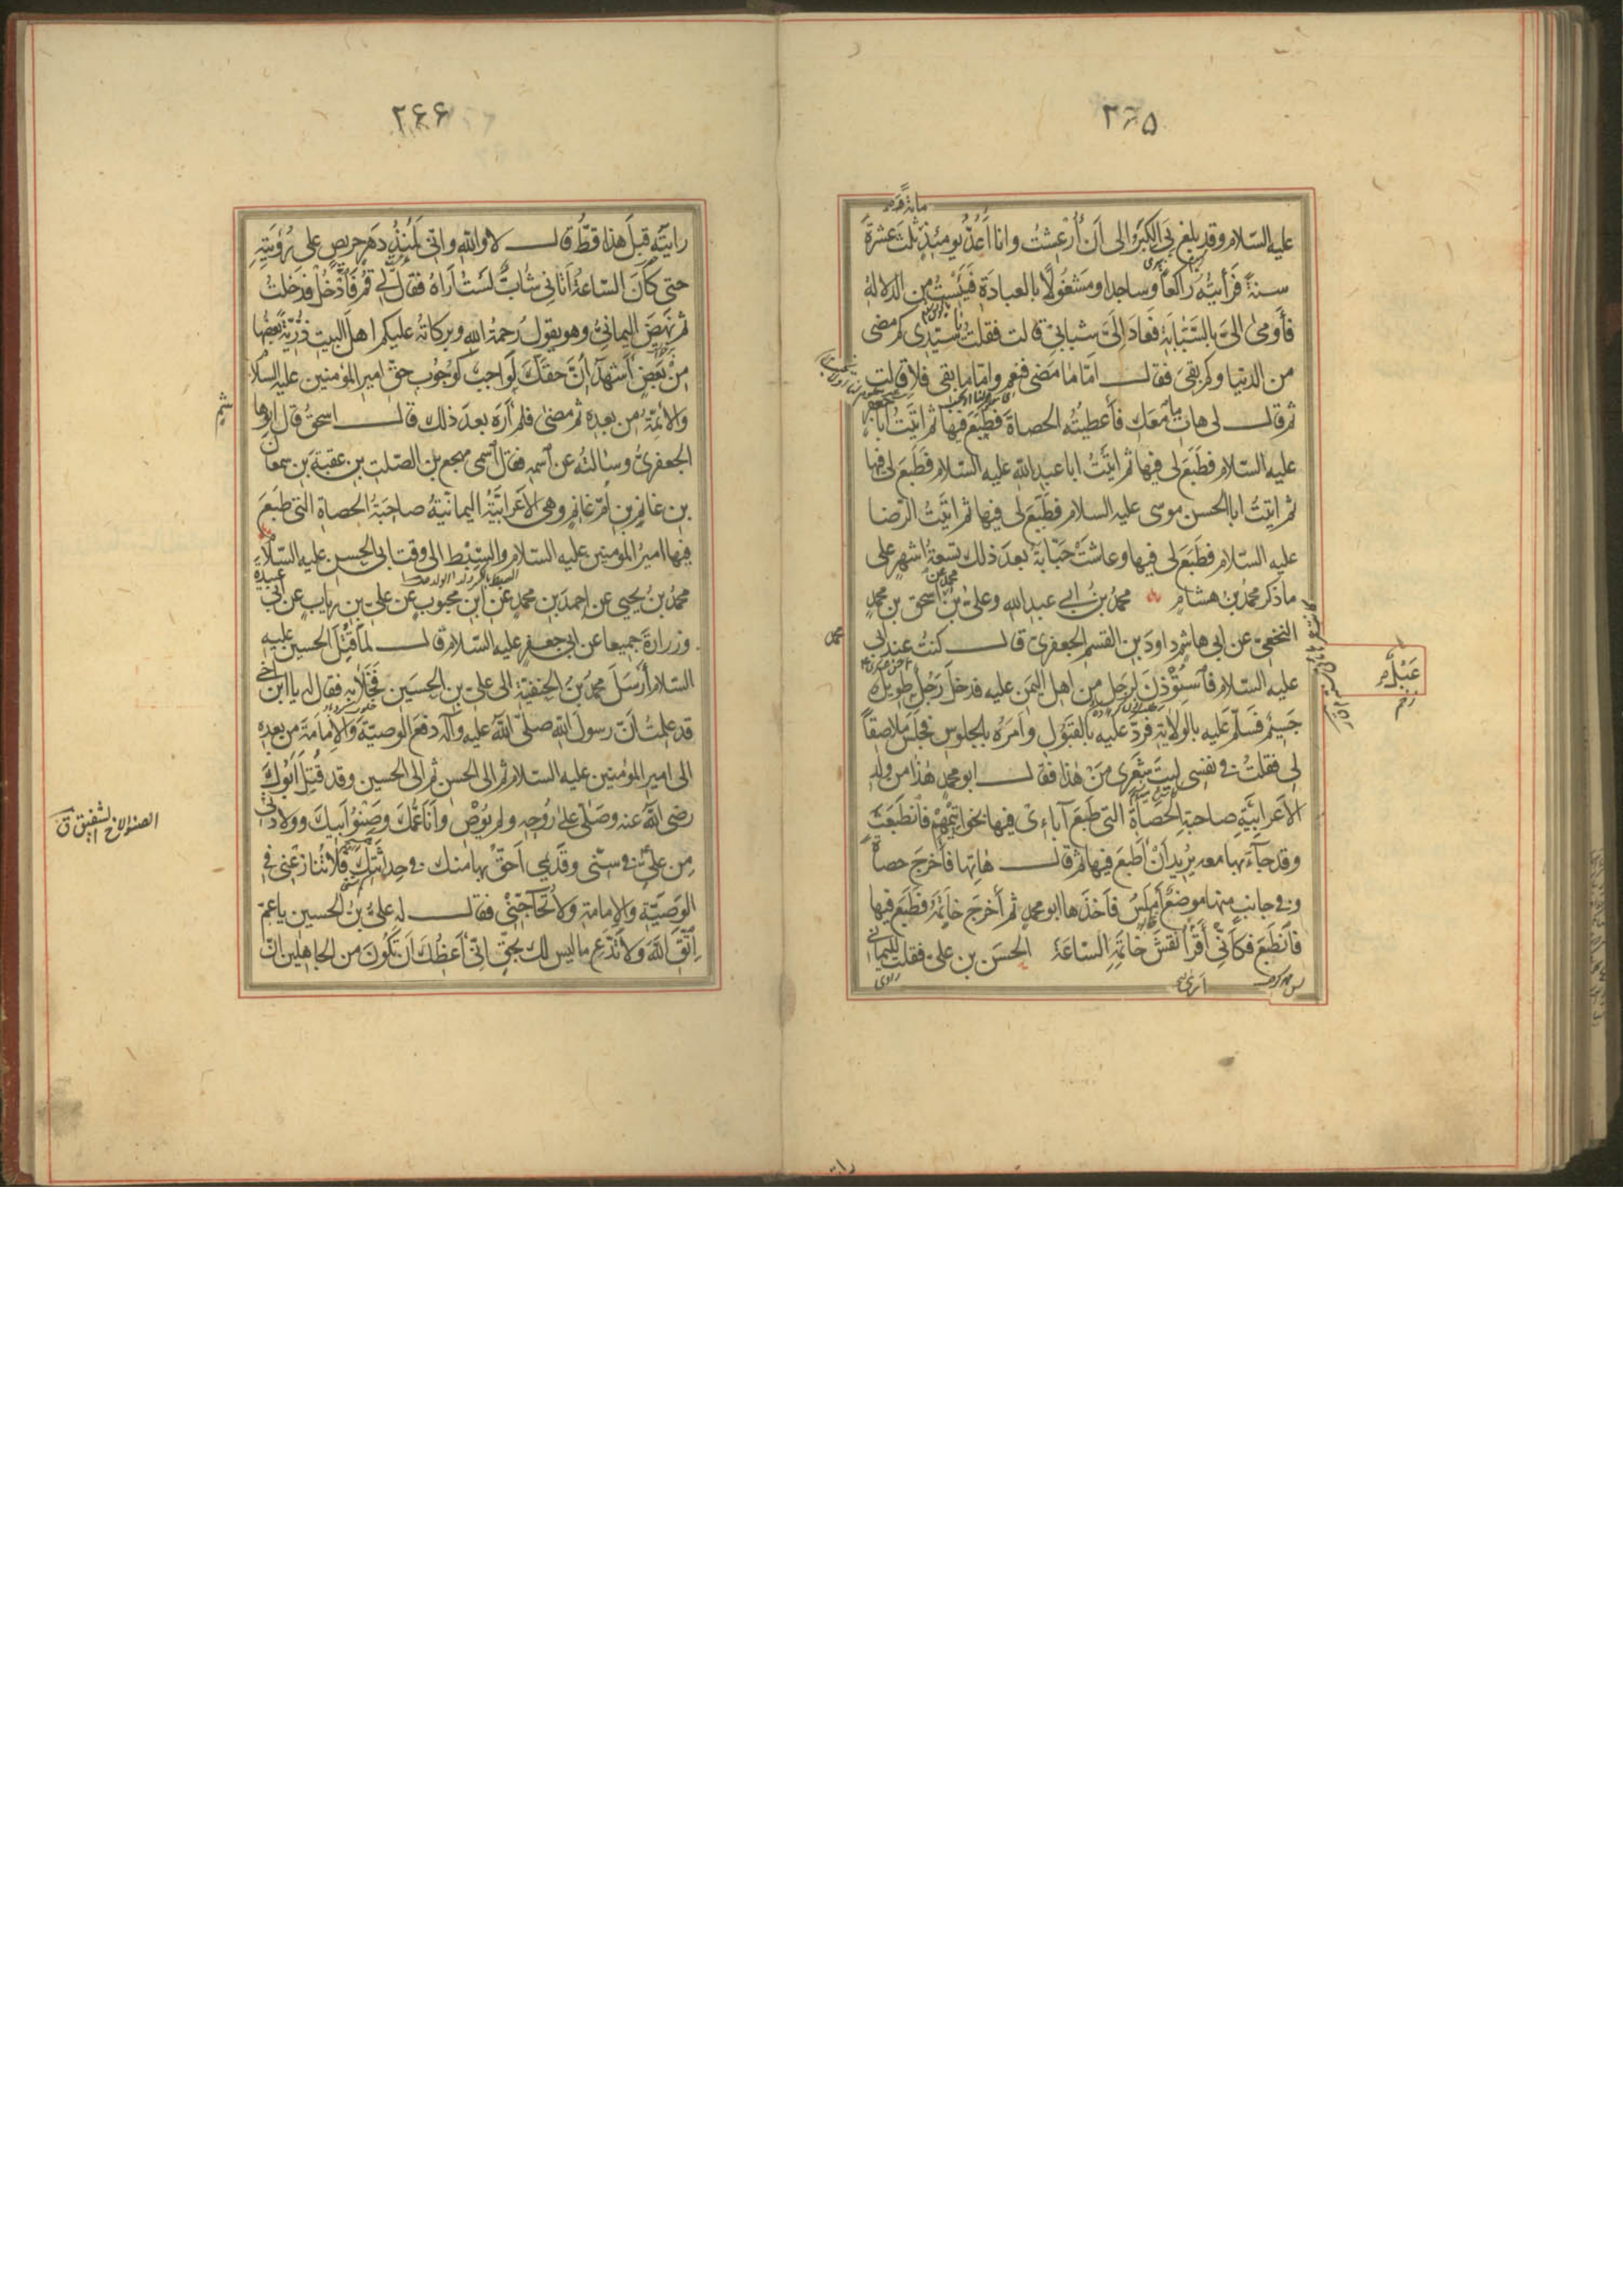 ۲۶۵
مائة و
عليه السّلام وقد بلغ بى الكبر الى ان أُرعشت وانا اعدّ يومئذٍ ثلث عشرة
سنة فرأيته راكعاً وساجدا ومشغولًا بالعبادة فيئست من الدلالة
فأومىٰ الىّ بالسّبّابة فعاد الىّ شبابى قالت فقلت يا سيّدى كم مضى
من الدنيا وكم بقى فقال امّا ما مضى فنعم وامّا ما بقى فلا قالت
ثم قال لى هات ما معك فأعطيته الحصاة فطبع فيها ثم اتيت ابا جعفر
عليه السّلام فطبع لى فيها ثم اتيت ابا عبد الله عليه السّلام فطبع لى فيها
ثم اتيت ابا الحسن موسى عليه السلام فطبع لى فيها ثم اتيت الرّضا
عليه السّلام فطبع لى فيها وعاشت حبّابة بعد ذلك تسعة اشهر على
ما ذكر محمد بن هشام محمد بن ابى عبد الله وعلى بن محمد عن اسحق بن محمد
النخعى عن ابى هاشم داود بن القسم الجعفرى قال كنت عند ابى محمد
عليه السّلام فاستؤذن لرجل من اهل اليمن عليه فدخل رجل طويل
جسيم فسلّم عليه بالولاية فردّ عليه بالقبول وامره بالجلوس فجلس ملاصقاً
لى فقلت فى نفسى ليت شعرى من هذا فقال ابو محمد هذا من ولد
الأعرابيّة صاحبة الحصاة التى طبع آباءى فيها بخواتيمهم فانطبعت
وقد جاء بها معه يريد ان اطبع فيها ثم قال هاتها فأخرج حصاة
وفى جانب منها موضع أملس فأخذها ابو محمد ثم أخرج خاتمه فطبع فيها
فانطبع فكأنّى أقرأ نقش خاتمه الساعة الحسن بن على فقلت لليمانى
عبل
۲۶۶
رايته قبل هذا قطّ قال لا والله وانّى لمنذ دهر حريص على رؤيته
حتى كأنّ السّاعة أتانى شابّ لست اراه فقال لى قم فادخل فدخلت
ثم نهض اليمانىّ وهو يقول رحمة الله وبركاته عليكم اهل البيت ذرّيّة بعضها
من بعض أشهد أنّ حقّك لواجب كوجوب حقّ امير المؤمنين عليه السلام
والائمّة من بعده ثم مضى فلم أره بعد ذلك قال اسحق قال ابو هاشم
الجعفرىّ وسألته عن اسمه فقال اسمى مهجع بن الصّلت بن عقبة بن سمعان
بن غانم بن امّ غانم وهى الأعرابيّة اليمانيّة صاحبة الحصاة التى طبع
فيها امير المؤمنين عليه السّلام والسّبط الى وقت ابى الحسن عليه السّلام
محمد بن يحيى عن احمد بن محمد عن ابن محبوب عن علىّ بن رياب عن ابى عبيدة
وزرارة جميعا عن ابى جعفر عليه السّلام قال لما قتل الحسين عليه
السّلام أرسل محمد بن الحنفيّة الى علىّ بن الحسين فخلا به فقال له يا ابن اخى
قد علمت انّ رسول الله صلّى الله عليه وآله دفع الوصيّة والإمامة من بعده
الى امير المؤمنين عليه السلام ثم الى الحسن ثم الى الحسين وقد قتل ابوك
رضى الله عنه وصلّى على روحه ولم يوص وأنا عمّك وصنو أبيك وولادتى
من علىّ فى سنّى وقدمى احقّ بها منك فى حداثتك فلا تنازعنى فى
الوصيّة والإمامة ولا تحاجّنى فقال له علىّ بن الحسين يا عمّ
اتّق الله ولا تدّع ما ليس لك بحقّ انّى أعظك ان تكون من الجاهلين انّ
الصنو الاخ الشقيق ق